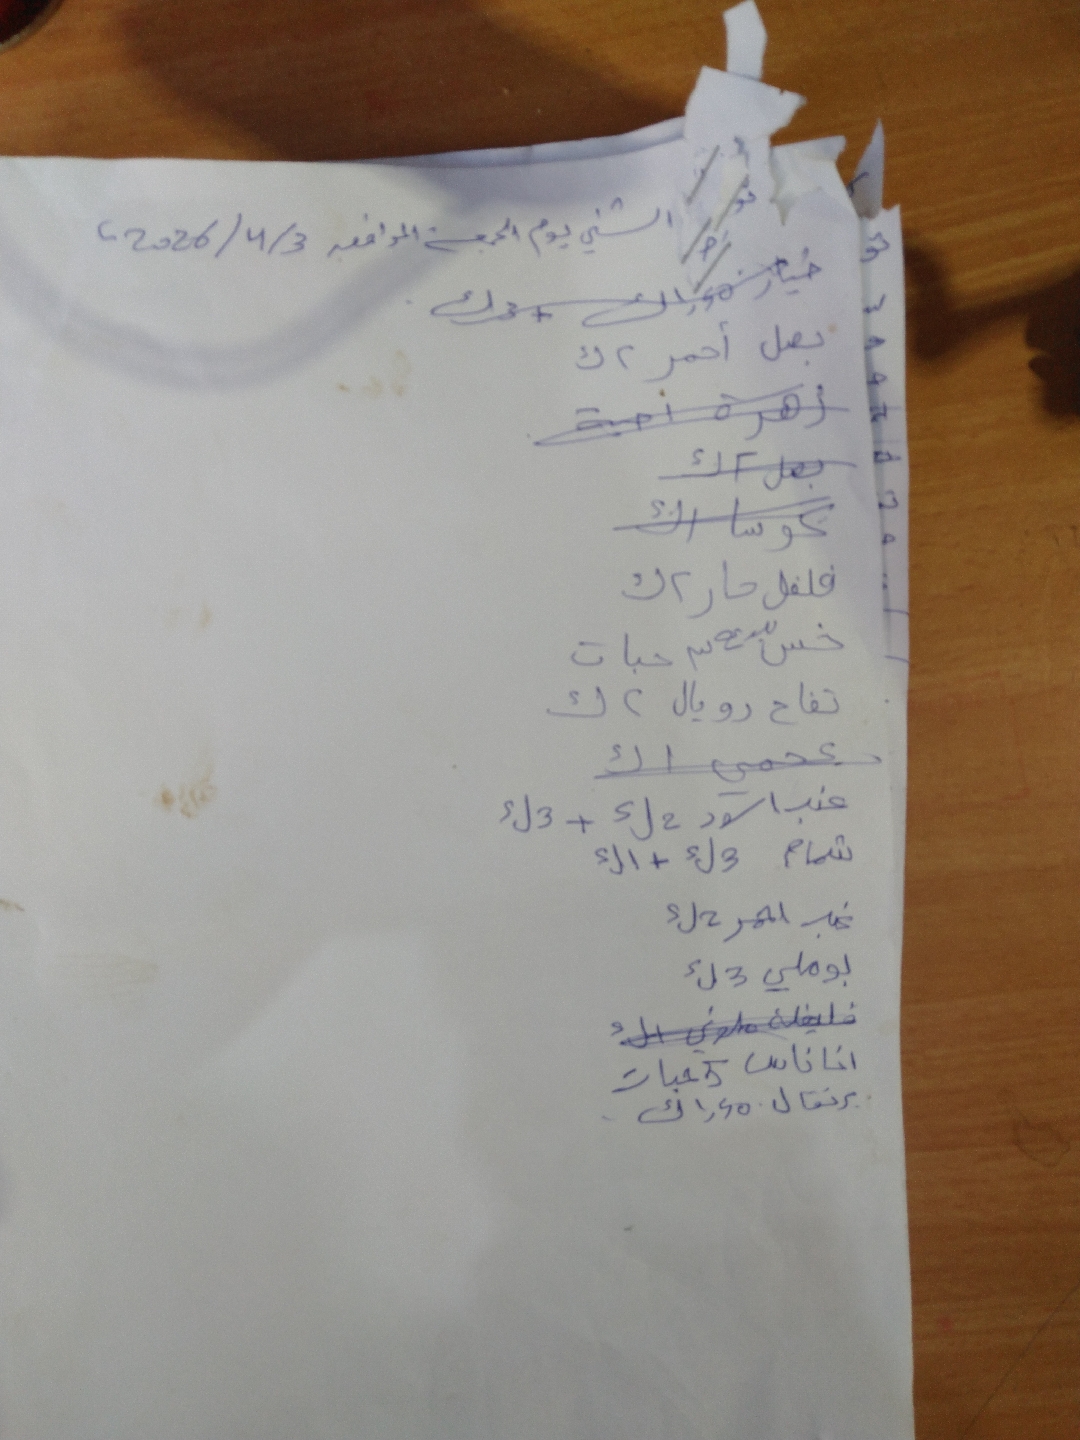 الشني يوم الجمعة الموافق 2026/4/3 م
خيار 1,50ك + 3ك
بصل أحمر ٢ ك
زهرة ١ حبة
بصل ٢ ك
كوسا ١ ك
فلفل حار ٢ ك
خس ٣ حبات
تفاح رويال ٢ ك
عجمي ١ ك
عنب اسود 2ك + 3ك
شمام 3ك + 1ك
عنب احمر 2ك
بوملي 3ك
فليفلة 1ك
اناناس 5 حبات
برتقال 1,50ك